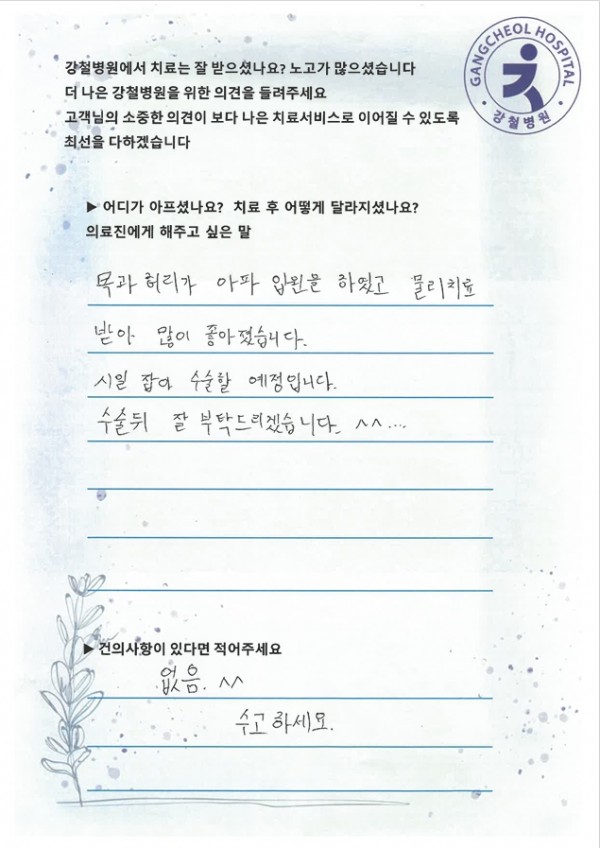 GANGCHEOL HOSPITAL
강철병원
강철병원에서 치료는 잘 받으셨나요? 노고가 많으셨습니다
더 나은 강철병원을 위한 의견을 들려주세요
고객님의 소중한 의견이 보다 나은 치료서비스로 이어질 수 있도록
최선을 다하겠습니다
▶ 어디가 아프셨나요? 치료 후 어떻게 달라지셨나요?
의료진에게 해주고 싶은 말
목과 허리가 아파 입원을 하였고 물리치료
받아 많이 좋아졌습니다.
시일 잡아 수술할 예정입니다.
수술뒤 잘 부탁드리겠습니다. ^^...
▶ 건의사항이 있다면 적어주세요
없음. ^^
수고하세요.